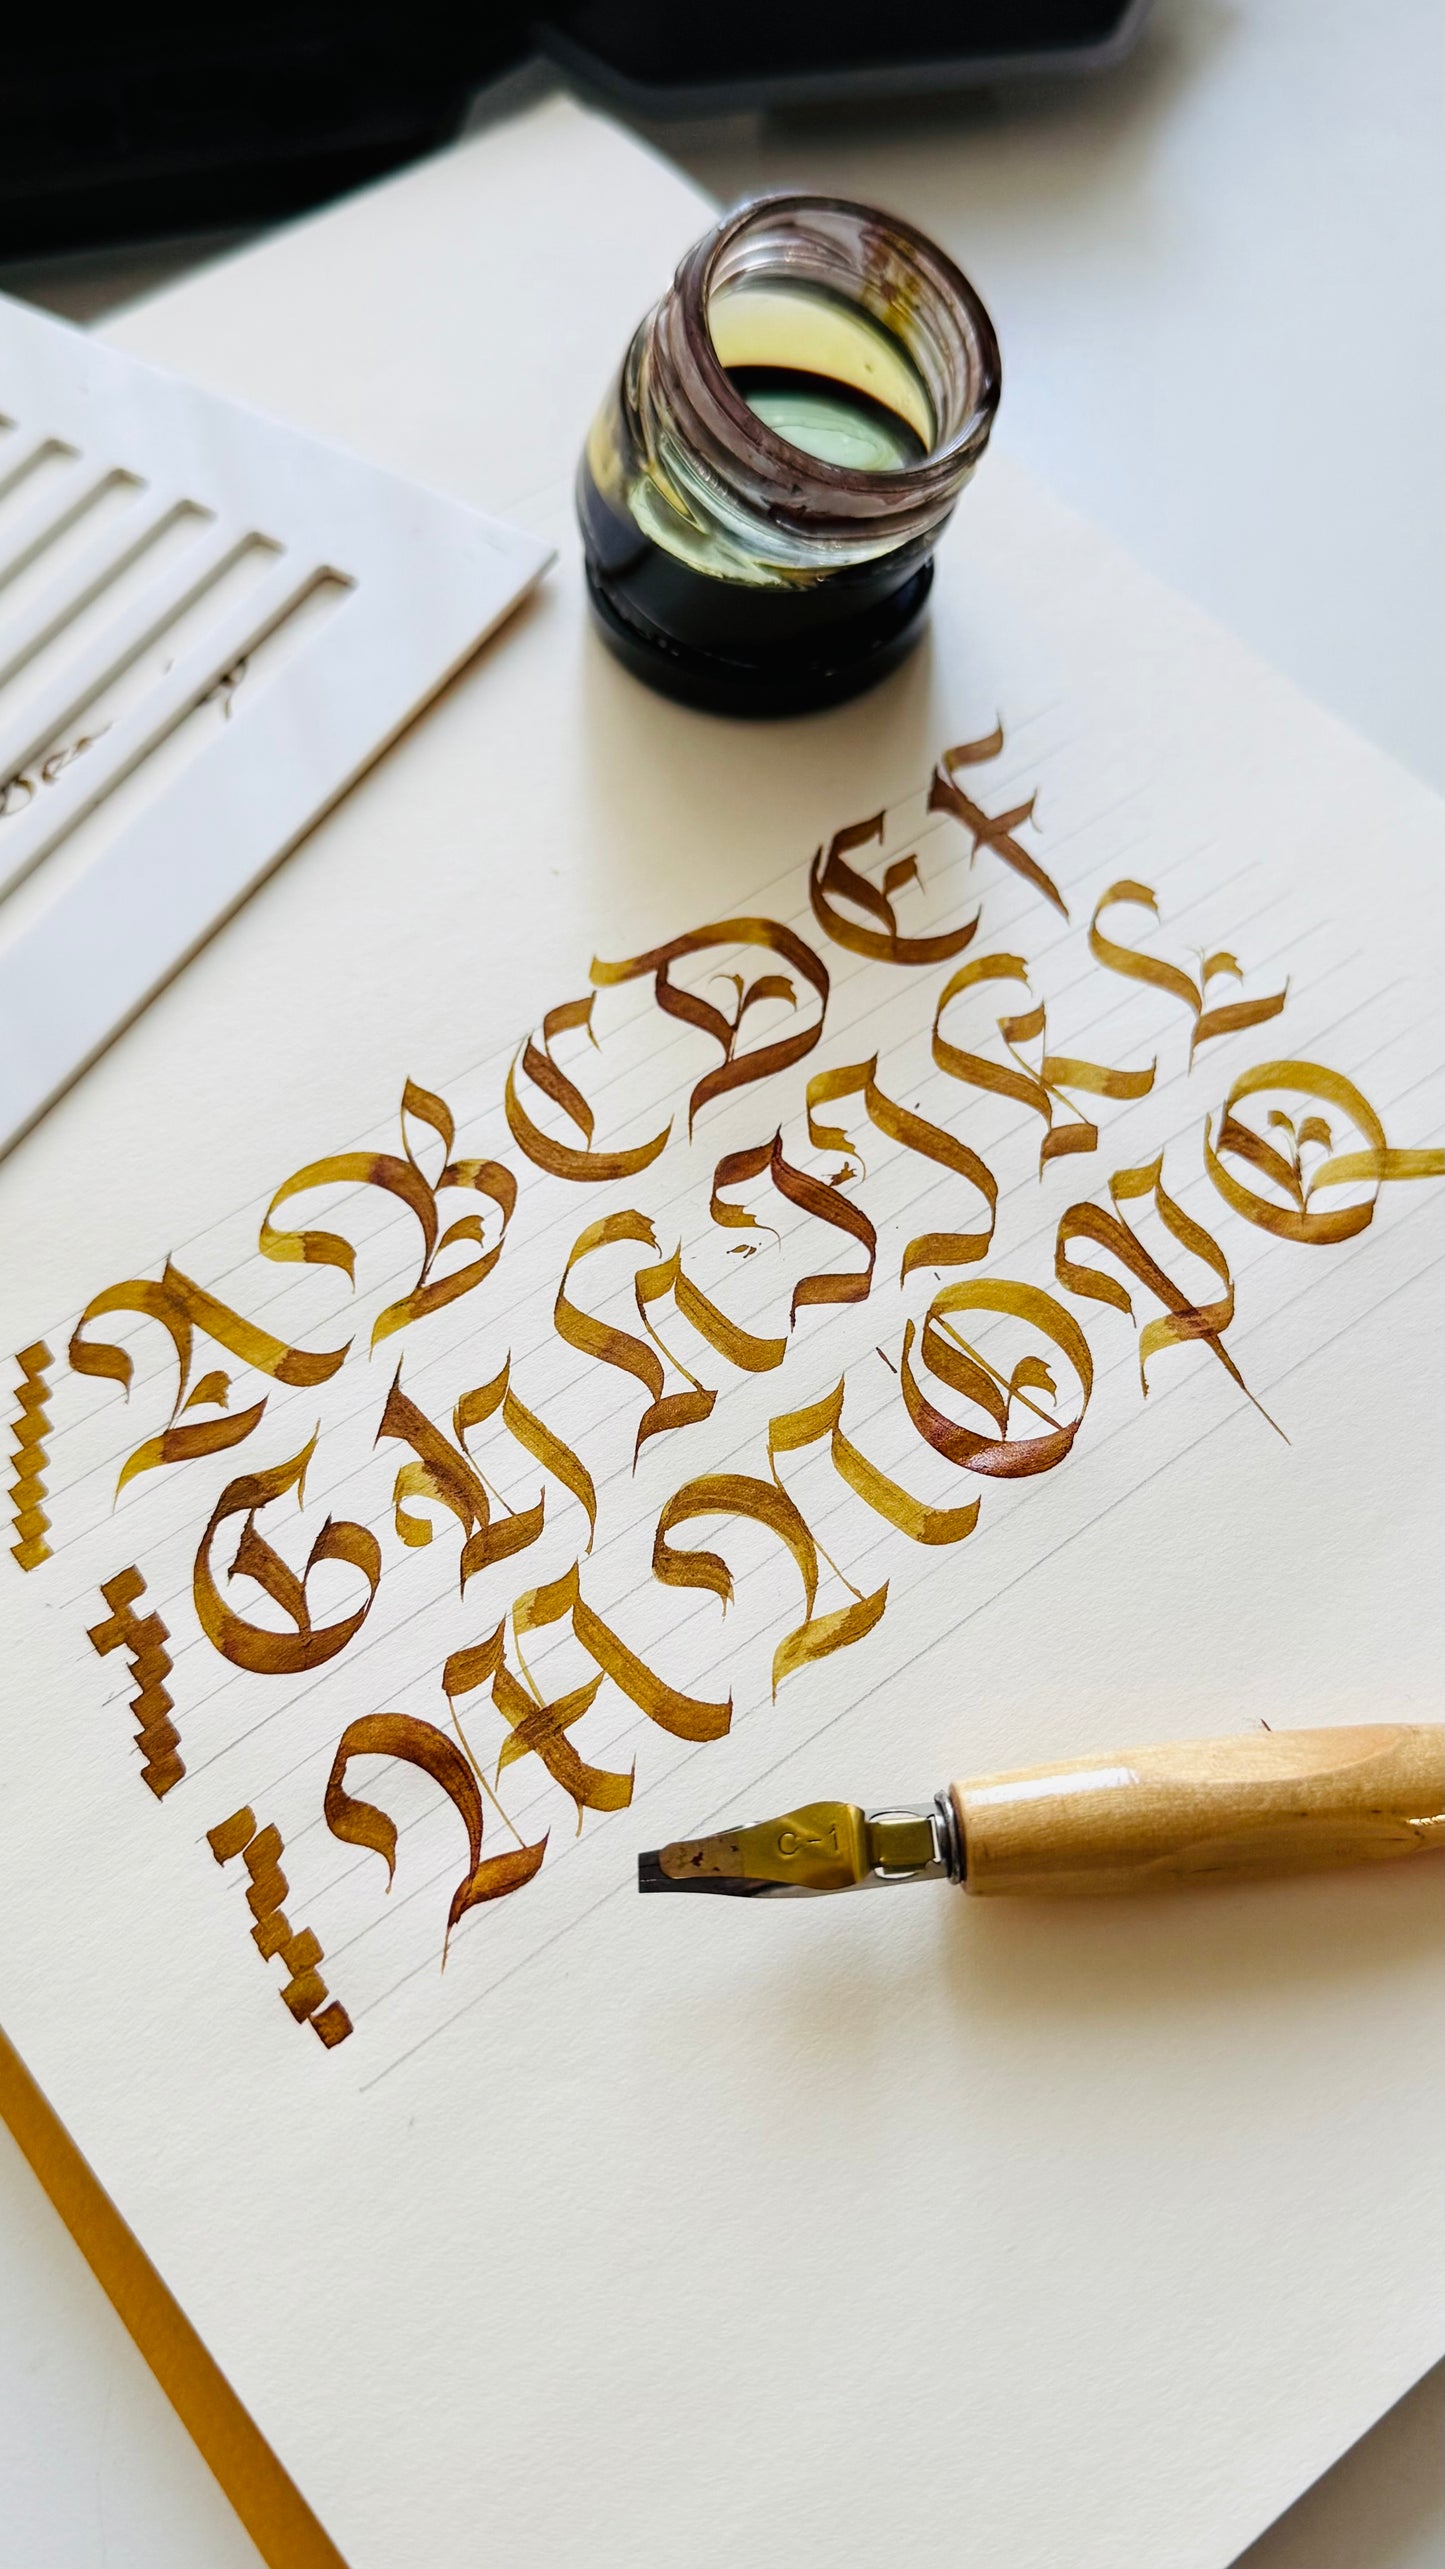 A B C D E F
G H H I J K L
M N O P Q
C-1